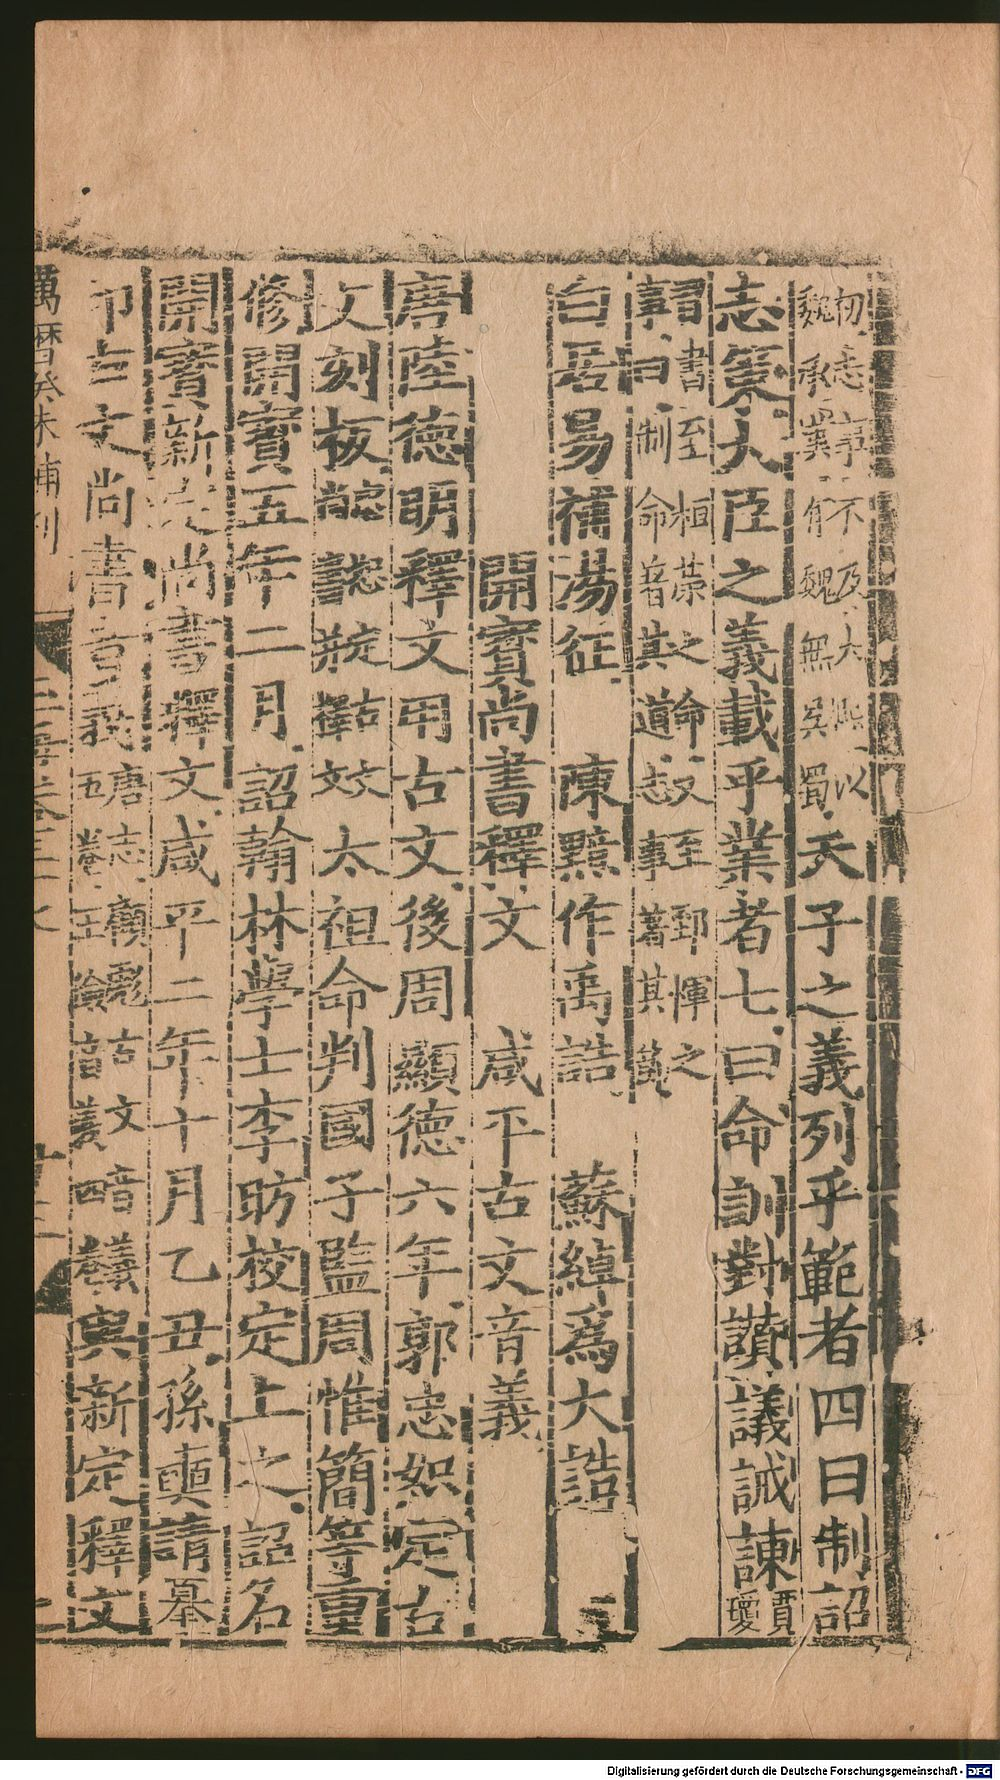 初志事不及太熙以
魏承冀有魏無吳蜀天子之義列乎範者四曰制詔
志策大臣之義載乎業者七曰命訓對讚議誡諫賈瓊
習書至桓榮之命故至郅惲之
事曰制命音其道志事著其
白居易補湯征 陳黯作禹誥 蘇綽爲大誥
開寶尚書釋文 咸平古文音義
唐陸德明釋文用古文後周顯德六年郭忠恕定古
文刻板 太祖命判國子監周惟簡等重
修開寶五年二月詔翰林學士李昉校定上之詔名
開寶新定尚書釋文咸平二年十月乙丑孫奭請摹
印古文尚書音義唐志顧彪古文音義五卷王儉音義四卷與新定釋文
萬曆癸未補刊
玉海卷三十七
Digitalisierung gefördert durch die Deutsche Forschungsgemeinschaft - DFG